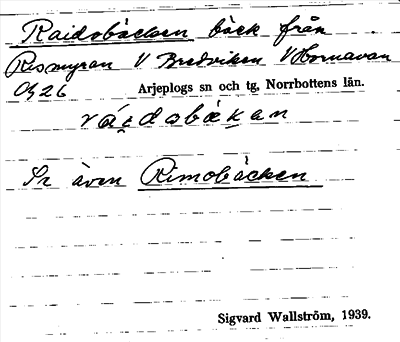 Raidobäcken bäck från
Rismyran V Bredviken V Hornavan
Og 26 Arjeplogs sn och tg, Norrbottens län.
Se även Rimobäcken
Sigvard Wallström, 1939.